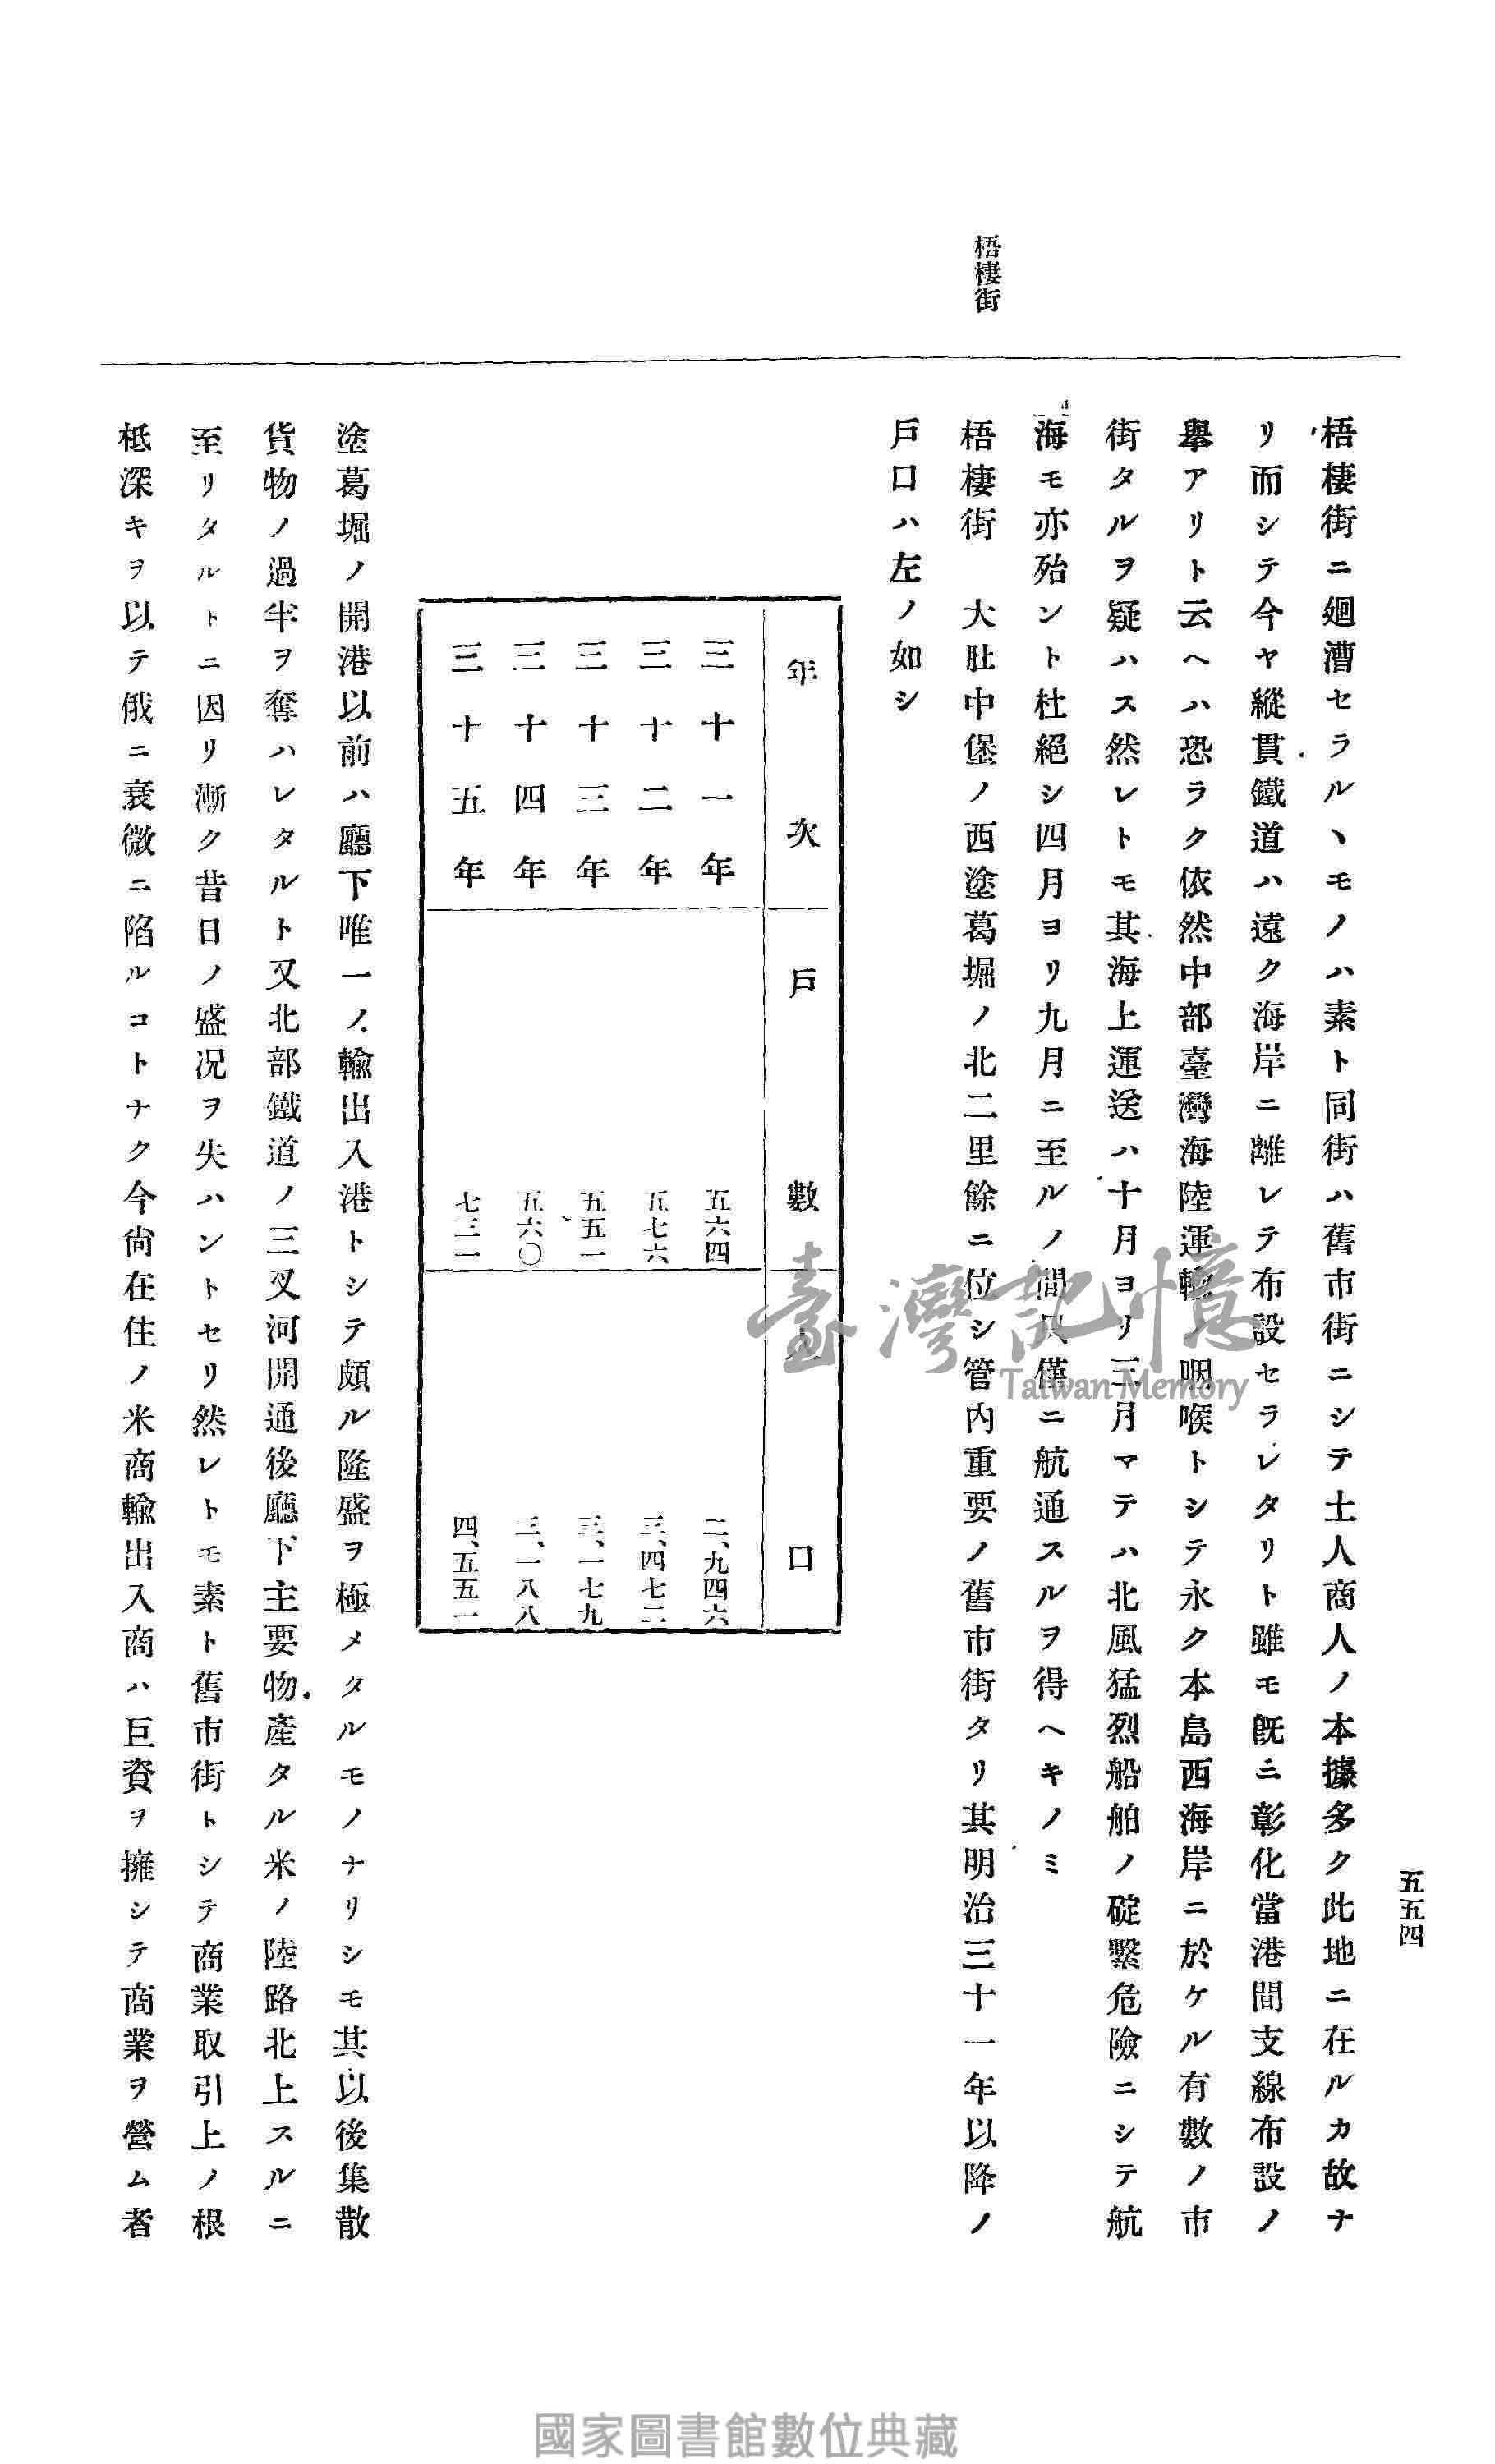 五五四
梧棲街
梧棲街ニ廻漕セラルヽモノハ素ト同街ハ舊市街ニシテ土人商人ノ本據多ク此地ニ在ルカ故ナ
リ而シテ今ヤ縱貫鐵道ハ遠ク海岸ニ離レテ布設セラレタリト雖モ旣ニ彰化當港間支線布設ノ
擧アリト云ヘハ恐ラク依然中部臺灣海陸運輸ノ咽喉トシテ永ク本島西海岸ニ於ケル有數ノ市
街タルヲ疑ハス然レトモ其海上運送ハ十月ヨリ三月マテハ北風猛烈船舶ノ碇繫危險ニシテ航
海モ亦殆ント杜絕シ四月ヨリ九月ニ至ルノ間只僅ニ航通スルヲ得ヘキノミ
梧棲街　大肚中堡ノ西塗葛堀ノ北二里餘ニ位シ管內重要ノ舊市街タリ其明治三十一年以降ノ
戶口ハ左ノ如シ
年次　戶數　人口
三十一年　五六四　二、九四六
三十二年　五七六　三、四七二
三十三年　五五一　三、一七九
三十四年　五六〇　三、一八八
三十五年　七三一　四、五五一
塗葛堀ノ開港以前ハ廳下唯一ノ輸出入港トシテ頗ル隆盛ヲ極メタルモノナリシモ其以後集散
貨物ノ過半ヲ奪ハレタルト又北部鐵道ノ三叉河開通後廳下主要物產タル米ノ陸路北上スルニ
至リタルトニ因リ漸ク昔日ノ盛况ヲ失ハントセリ然レトモ素ト舊市街トシテ商業取引上ノ根
柢深キヲ以テ俄ニ衰微ニ陷ルコトナク今尙在住ノ米商輸出入商ハ巨資ヲ擁シテ商業ヲ營ム者
臺灣記憶
Taiwan Memory
國家圖書館數位典藏